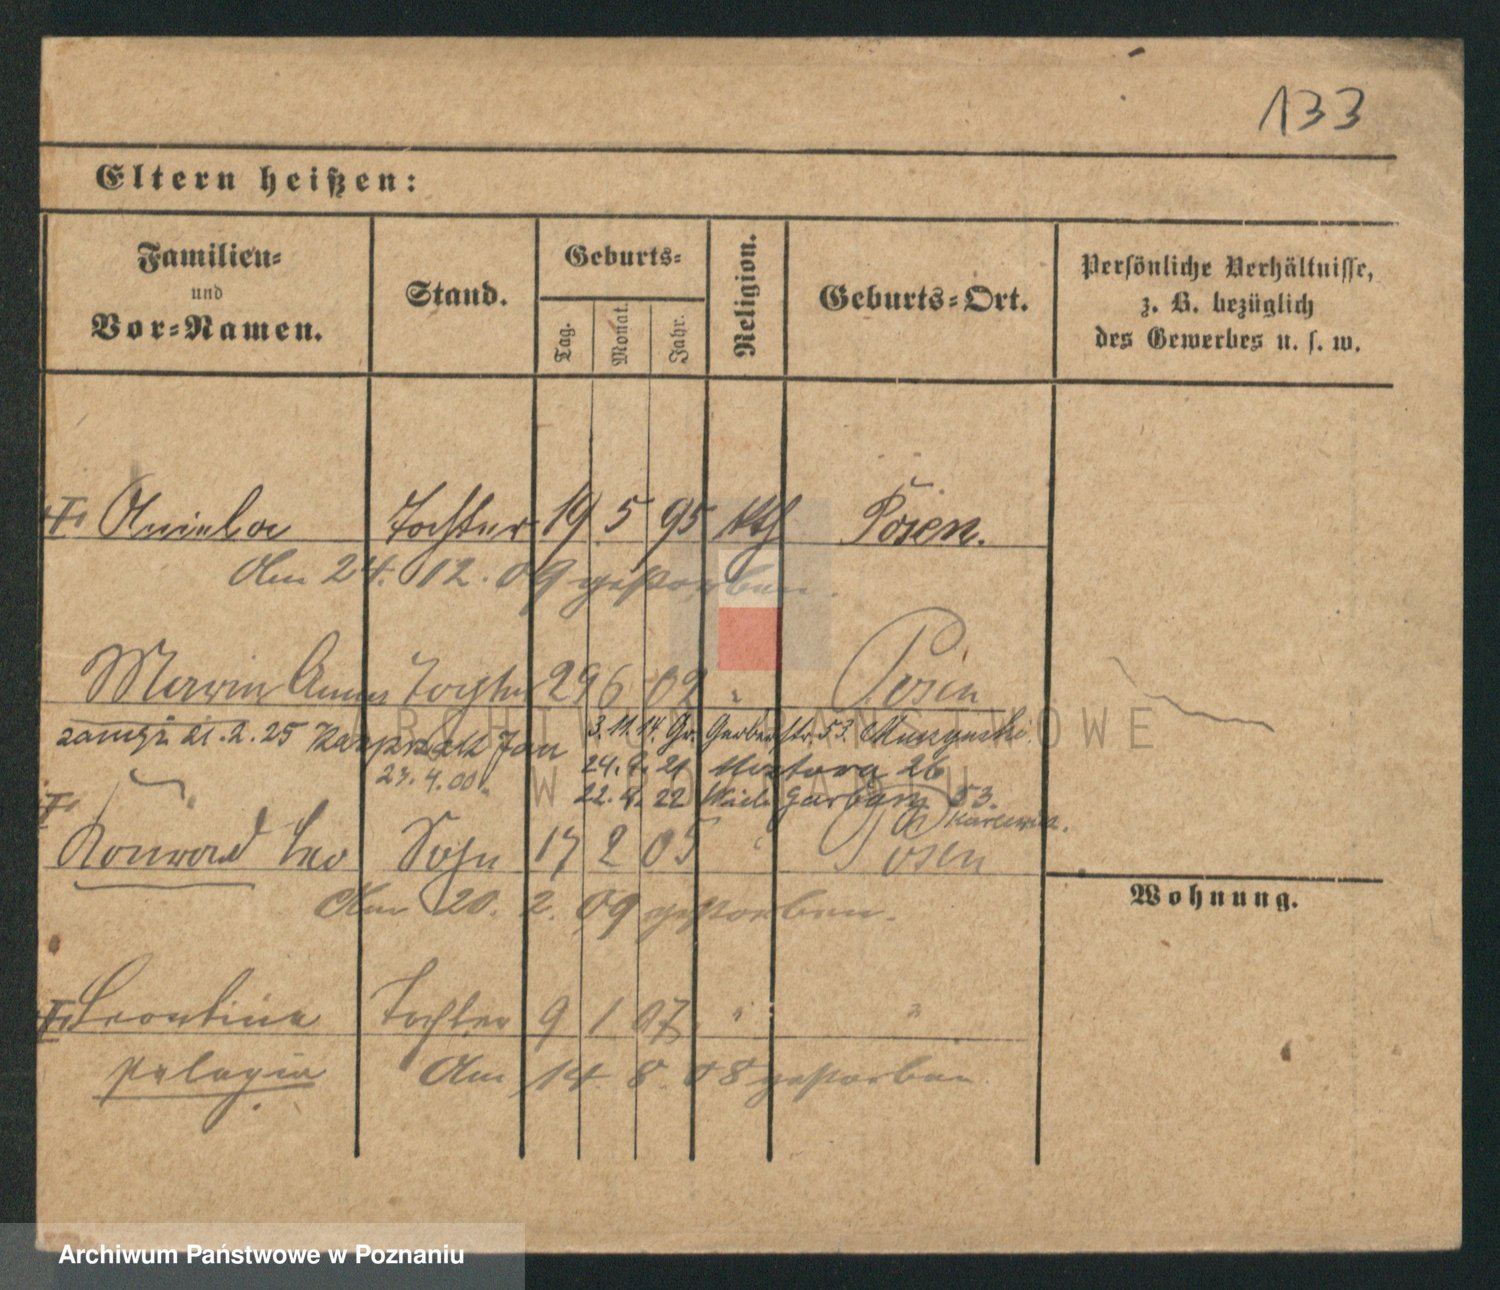 133
Eltern heißen:
Familien-
und
Vor-Namen.
Stand.
Geburts-
Tag.
Monat.
Jahr.
Religion.
Geburts-Ort.
Persönliche Verhältnisse,
z. B. bezüglich
des Gewerbes u. s. w.
Aniela Tochter 19 5 95 kth Posen.
Am 24. 12. 09 gestorben.
Maria Anna Tochter 29 6 02 " Posen
zamęż. 21.2.25 Jan 3.11.14. Gr. Gerberstr. 53.
23.4.00. 24.4.21 Mostowa 26
22.4.22 Garbary 53.
Konrad Leo Sohn 17 2 05 " Posen
Am 20. 2. 09 gestorben.
Wohnung.
Leontine Tochter 9 1 07 " "
Pelagia Am 14 8. 08 gestorben
ARCHIWUM PAŃSTWOWE
W POZNANIU
Archiwum Państwowe w Poznaniu